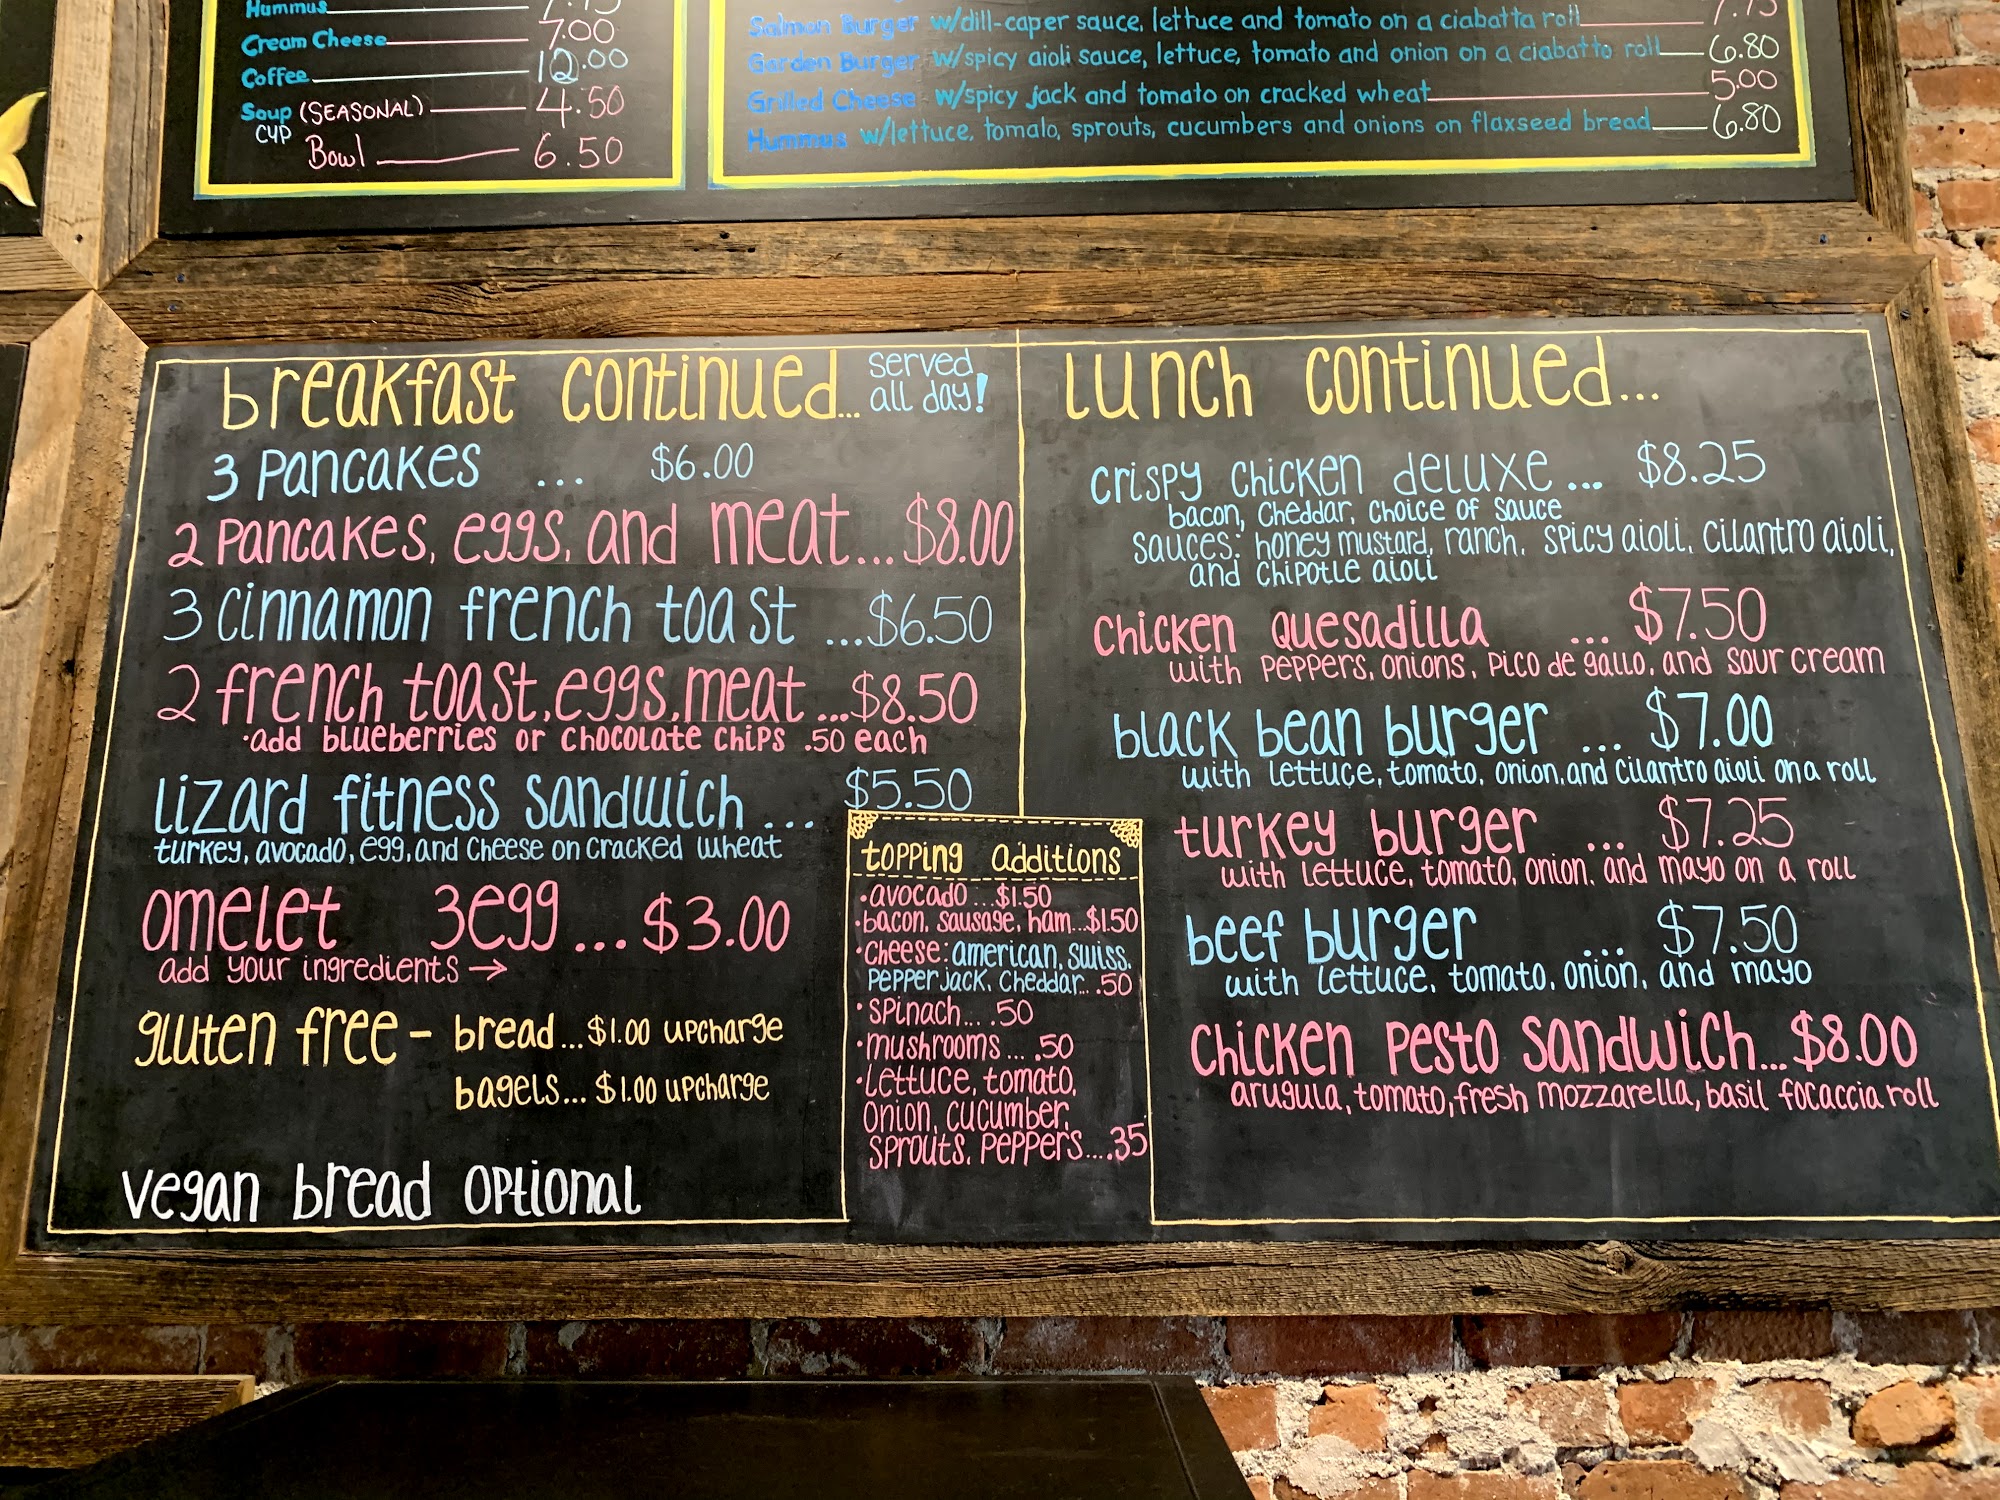 Hummus
Cream Cheese 7.00
Coffee 12.00
Soup (SEASONAL) 4.50
CUP
Bowl 6.50
Salmon Burger w/dill-caper sauce, lettuce and tomato on a ciabatta roll 7.75
Garden Burger w/spicy aioli sauce, lettuce, tomato and onion on a ciabatta roll 6.80
Grilled Cheese w/spicy jack and tomato on cracked wheat 5.00
Hummus w/lettuce, tomato, sprouts, cucumbers and onions on flaxseed bread 6.80
breakfast continued... served all day!
3 Pancakes ... $6.00
2 Pancakes, eggs, and meat... $8.00
3 cinnamon french toast ...$6.50
2 french toast, eggs, meat ...$8.50
·add blueberries or chocolate chips .50 each
Lizard fitness sandwich ... $5.50
turkey, avocado, egg, and cheese on cracked wheat
omelet 3egg ... $3.00
add your ingredients →
gluten free - bread ... $1.00 upcharge
bagels... $1.00 upcharge
vegan bread optional
topping additions
·avocado ...$1.50
·bacon, sausage, ham...$1.50
·cheese: american, swiss,
pepper jack, cheddar... .50
·spinach... .50
·mushrooms ... .50
·lettuce, tomato,
onion, cucumber,
sprouts, peppers....35
lunch continued...
crispy chicken deluxe ... $8.25
bacon, cheddar, choice of sauce
sauces: honey mustard, ranch, spicy aioli, cilantro aioli,
and chipotle aioli
chicken quesadilla ... $7.50
with peppers, onions, pico de gallo, and sour cream
black bean burger ... $7.00
with lettuce, tomato, onion, and cilantro aioli on a roll
turkey burger ... $7.25
with lettuce, tomato, onion, and mayo on a roll
beef burger ... $7.50
with lettuce, tomato, onion, and mayo
chicken pesto sandwich... $8.00
arugula, tomato, fresh mozzarella, basil focaccia roll